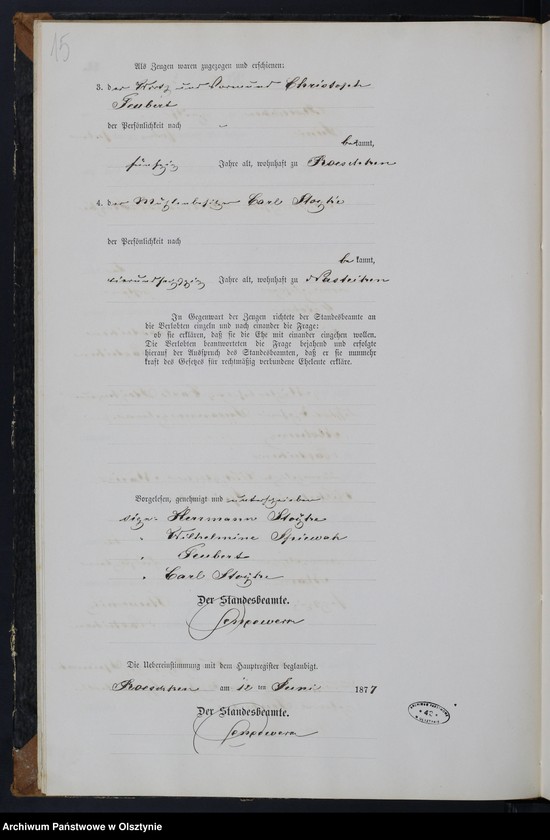 15
Als Zeugen waren zugezogen und erschienen:
3. der Wirth und Vormund Christoph
Teubert
der Persönlichkeit nach
bekannt,
fünfzig Jahre alt, wohnhaft zu Roeschken
4. der Mühlenbesitzer Carl
der Persönlichkeit nach
be kannt,
vierundsechszig Jahre alt, wohnhaft zu
In Gegenwart der Zeugen richtete der Standesbeamte an
die Verlobten einzeln und nach einander die Frage:
ob sie erklären, daß sie die Ehe mit einander eingehen wollen.
Die Verlobten beantworteten die Frage bejahend und erfolgte
hierauf der Ausspruch des Standesbeamten, daß er sie nunmehr
kraft des Gesetzes für rechtmäßig verbundene Eheleute erkläre.
Vorgelesen, genehmigt und unterschrieben
Herrmann
Wilhelmine Spiewak
Teubert
Carl
Der Standesbeamte.
Die Uebereinstimmung mit dem Hauptregister beglaubigt.
Roeschken am 12 ten Juni 1877
Der Standesbeamte.
Archiwum Państwowe w Olsztynie